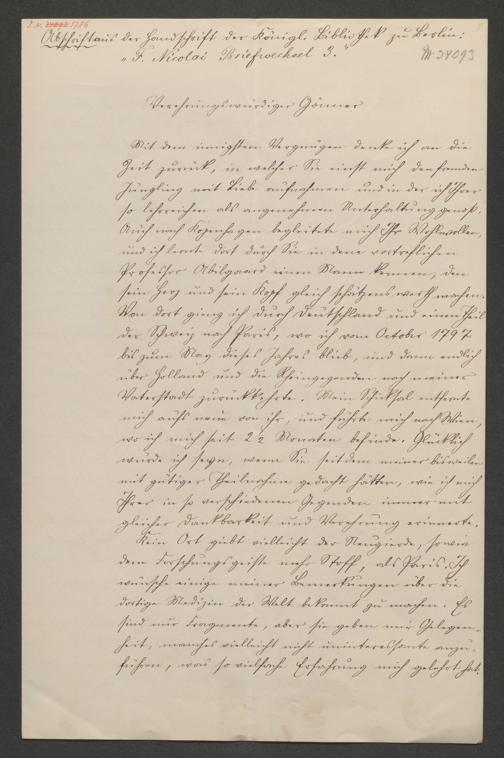 Z. N. 1786
Abschrift aus der Handschrift der Königl. Bibliothek zu Berlin:
"F. Nicolai Briefwechsel 3."
N. 34093
Verehrungswürdiger Gönner
Mit dem innigsten Vergnügen denke ich an die
Zeit zurück, in welcher Sie einst mich den fremden
Jüngling mit Liebe aufnahmen und in der ich Ihrer
so lehrreichen als angenehmen Unterhaltung genoß.
Auch nach Kopenhagen begleitete mich Ihr Wohlwollen,
und ich lernte dort durch Sie in dem vortrefflichen
Professor Abilgaard einen Mann kennen, den
sein Herz und sein Kopf gleich schätzenswerth machen.
Von dort ging ich durch Deutschland und einen Theil
der Schweiz nach Paris, wo ich vom October 1797
bis zum May dieses Jahres blieb, und dann endlich
über Holland und die Rheingegenden nach meiner
Vaterstadt zurückkehrte. Mein Schicksal entfernte
mich aufs neue von ihr, und führte mich nach Wien,
wo ich mich seit 2½ Monaten befinde. Glücklich
würde ich seyn, wenn Sie seitdem meiner bisweilen
mit gütiger Theilnahme gedacht hätten, wie ich mich
Ihrer in so verschiedenen Gegenden immer mit
gleicher Dankbarkeit und Verehrung erinnerte.
Kein Ort giebt vielleicht der Neugierde, sowie
dem Forschungsgeiste mehr Stoff, als Paris. Ich
wünsche einige meiner Bemerkungen über die
dortige Medizin der Welt bekannt zu machen. Es
sind nur Fragmente, aber sie geben mir Gelegen-
heit, manches vielleicht nicht uninteressante anzu-
führen, was so vielfache Erfahrung mich gelehrt hat.